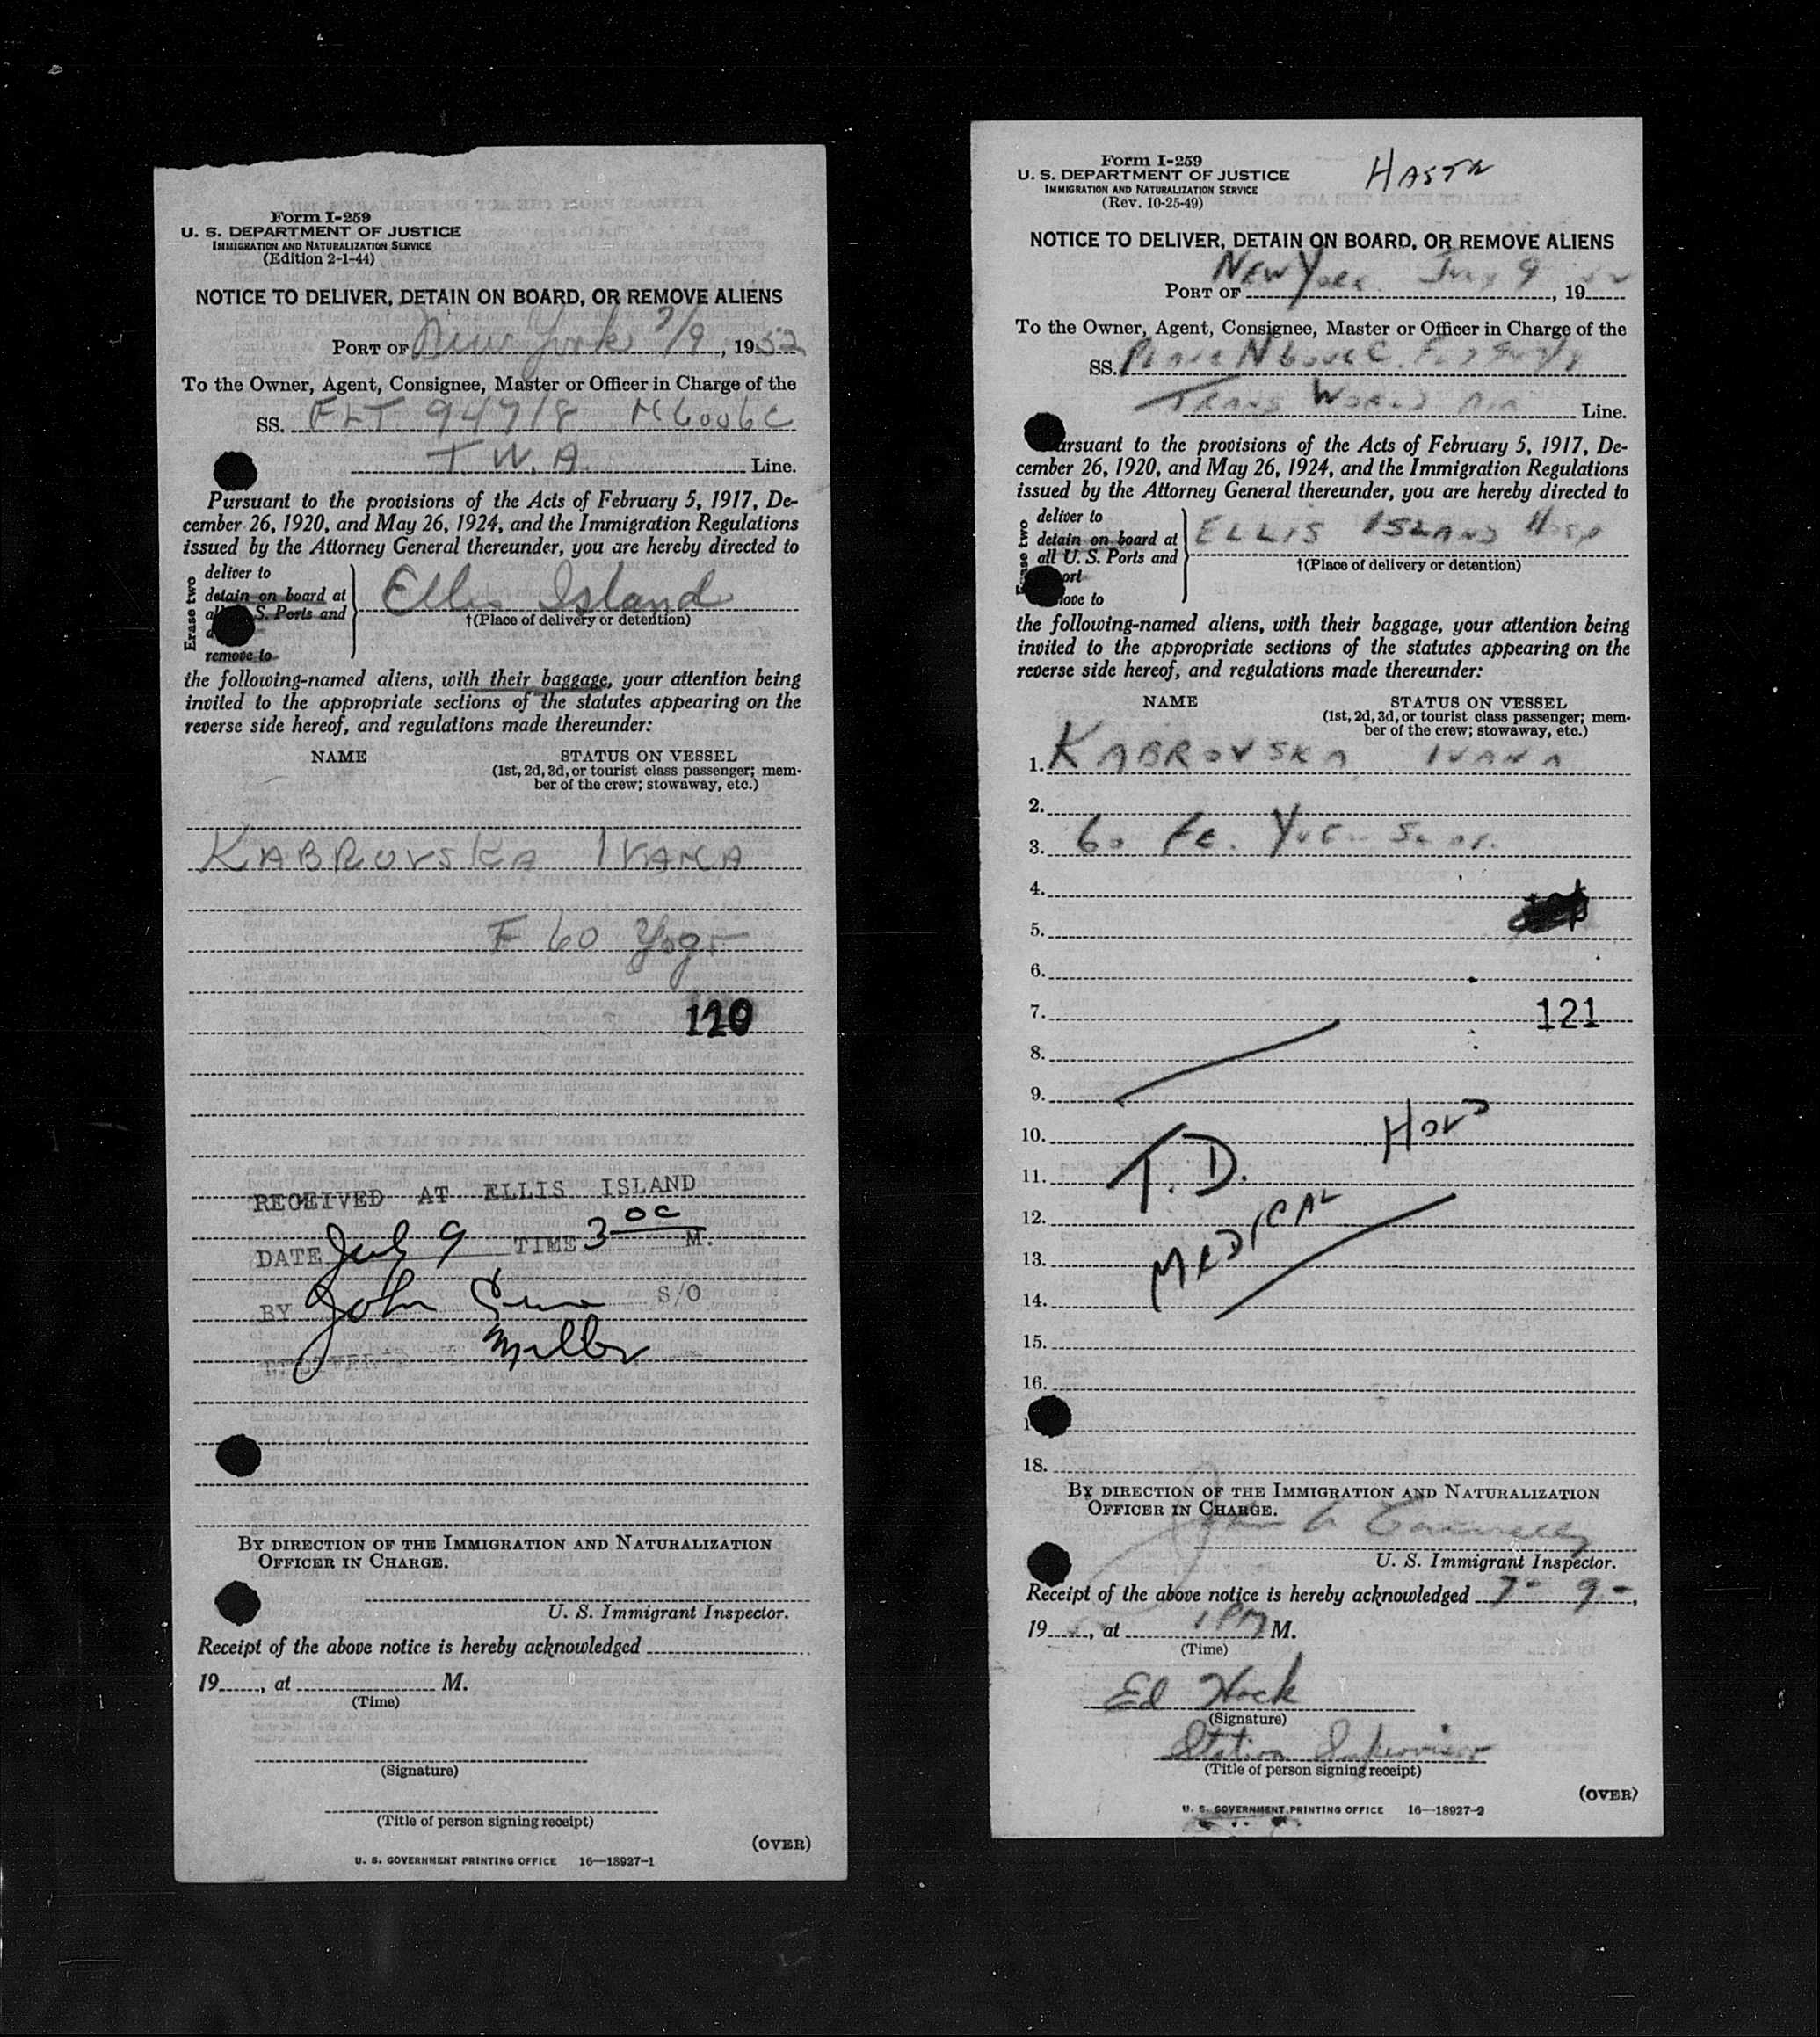 Form I-259
U. S. DEPARTMENT OF JUSTICE
IMMIGRATION AND NATURALIZATION SERVICE
(Edition 2-1-44)
NOTICE TO DELIVER, DETAIN ON BOARD, OR REMOVE ALIENS
PORT OF New York 7/9, 1952
To the Owner, Agent, Consignee, Master or Officer in Charge of the
SS. FLT 947/8 N6006C
T. W. A. Line.
Pursuant to the provisions of the Acts of February 5, 1917, De-
cember 26, 1920, and May 26, 1924, and the Immigration Regulations
issued by the Attorney General thereunder, you are hereby directed to
Erase two
deliver to
detain on board at
S. Ports and
remove to
Ellis Island
†(Place of delivery or detention)
the following-named aliens, with their baggage, your attention being
invited to the appropriate sections of the statutes appearing on the
reverse side hereof, and regulations made thereunder:
NAME STATUS ON VESSEL
(1st, 2d, 3d, or tourist class passenger; mem-
ber of the crew; stowaway, etc.)
KABROVSKA IVANA
F 60 Yog.
120
RECEIVED AT ELLIS ISLAND
DATE July 9 TIME 3 00 M.
BY John S/O
Miller
BY DIRECTION OF THE IMMIGRATION AND NATURALIZATION
OFFICER IN CHARGE.
U. S. Immigrant Inspector.
Receipt of the above notice is hereby acknowledged
19, at M.
(Time)
(Signature)
(Title of person signing receipt)
(OVER)
U. S. GOVERNMENT PRINTING OFFICE 16—18927-1
Form I-259
U. S. DEPARTMENT OF JUSTICE
IMMIGRATION AND NATURALIZATION SERVICE
(Rev. 10-25-49)
NOTICE TO DELIVER, DETAIN ON BOARD, OR REMOVE ALIENS
PORT OF New York July 9, 1952
To the Owner, Agent, Consignee, Master or Officer in Charge of the
SS. Plane N6006C 947/8
TRANS WORLD AIR Line.
ursuant to the provisions of the Acts of February 5, 1917, De-
cember 26, 1920, and May 26, 1924, and the Immigration Regulations
issued by the Attorney General thereunder, you are hereby directed to
Erase two
deliver to
detain on board at
all U. S. Ports and
ort
ove to
ELLIS ISLAND Hosp
†(Place of delivery or detention)
the following-named aliens, with their baggage, your attention being
invited to the appropriate sections of the statutes appearing on the
reverse side hereof, and regulations made thereunder:
NAME STATUS ON VESSEL
(1st, 2d, 3d, or tourist class passenger; mem-
ber of the crew; stowaway, etc.)
1. KABROVSKA IVANA
2.
3. 60 Fe.
4.
5.
6.
7. 121
8.
9.
10. Hosp
11. T. D.
12. MEDICAL
13.
14.
15.
16.
18.
BY DIRECTION OF THE IMMIGRATION AND NATURALIZATION
OFFICER IN CHARGE.
U. S. Immigrant Inspector.
Receipt of the above notice is hereby acknowledged 7-9-,
19, at 1 PM M.
(Time)
Ed Hock
(Signature)
Station Supervisor
(Title of person signing receipt)
(OVER)
U. S. GOVERNMENT PRINTING OFFICE 16—18927-2